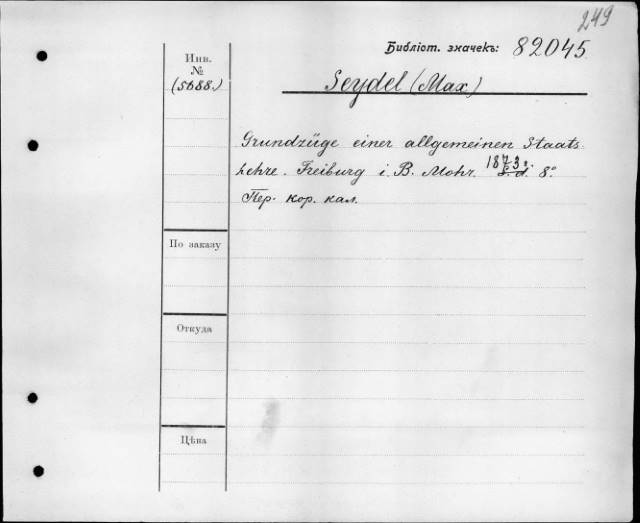 249
Библіот. значекъ: 82045
Инв.
№
(5688.)
Seydel (Max)
Grundzüge einer allgemeinen Staats-
Lehre. Freiburg i. B. Mohr. 1873 г. s. d. 8°
Пер. кор. кал.
По заказу
Откуда
Цѣна